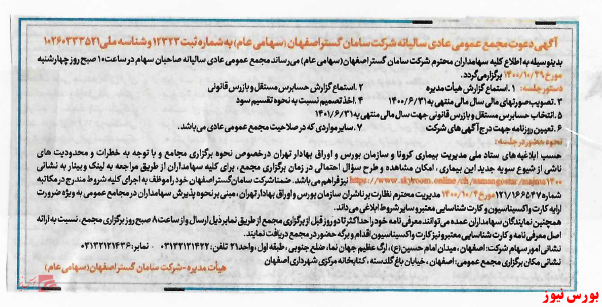 آگهی دعوت مجمع عمومی عادی سالیانه شرکت سامان گستر اصفهان (سهامی عام) به شماره ثبت ۱۲۳۲۳ و شناسه ملی ۱۰۲۶۰۳۳۳۵۲۱
بدینوسیله به اطلاع کلیه سهامداران محترم شرکت سامان گستر اصفهان (سهامی عام) می‌رساند مجمع عمومی عادی سالیانه صاحبان سهام در ساعت ۱۰ صبح روز چهارشنبه
مورخ ۱۴۰۰/۱۰/۲۹ برگزار می‌گردد.
دستور جلسه: ۱. استماع گزارش هیأت مدیره ۲. استماع گزارش حسابرس مستقل و بازرس قانونی
۳. تصویب صورتهای مالی سال مالی منتهی به ۱۴۰۰/۶/۳۱ ۴. اخذ تصمیم نسبت به نحوه تقسیم سود
۵. انتخاب حسابرس مستقل و بازرس قانونی جهت سال مالی منتهی به ۱۴۰۱/۶/۳۱
۶. تعیین روزنامه جهت درج آگهی‌های شرکت ۷. سایر مواردی که در صلاحیت مجمع عمومی عادی می‌باشد.
نحوه حضور در جلسه:
حسب ابلاغیه های ستاد ملی مدیریت بیماری کرونا و سازمان بورس و اوراق بهادار تهران درخصوص نحوه برگزاری مجامع و با توجه به خطرات و محدودیت های
ناشی از شیوع سویه جدید این بیماری، امکان مشاهده و طرح سؤال احتمالی در زمان برگزاری مجمع، برای کلیه سهامداران از طریق مراجعه به لینک وبینار به نشانی
https://www.skyroom.online/ch/samangostar/majma1400 نیز فراهم می‌باشد. ضمنا شرکت سامان گستر اصفهان خود را موظف به اجرای کلیه شروط مندرج در مکاتبه
شماره ۱۲۱/۱۶۶۵۴۷ مورخ ۱۴۰۰/۱۰/۴ مدیریت محترم نظارت بر ناشران سازمان بورس و اوراق بهادار تهران، مبنی بر نحوه پذیرش سهامداران در مجامع عمومی به ویژه ضرورت
ارایه کارت واکسیناسیون و کارت شناسایی معتبر و سایر شروط ابلاغی می‌داند.
همچنین نمایندگان سهامداران عمده می‌توانند معرفی نامه خود را حداکثر تا دو روز قبل از برگزاری مجمع از طریق نمابر ذیل ارسال و از ساعت ۸ صبح روز برگزاری مجمع، نسبت به ارائه
اصل معرفی نامه و کارت شناسایی معتبر و نیز کارت واکسیناسیون اقدام و برگه حضور در مجمع دریافت نمایند.
نشانی امور سهام شرکت: اصفهان، میدان امام حسین (ع)، ارگ اعظم جهان نما، ضلع جنوبی، طبقه اول، واحد ۲۱ تلفن: ۰۳۱۳۲۱۳۱۴۲۲ - نمابر: ۰۳۱۳۲۱۲۱۴۳۶
نشانی مکان برگزاری مجمع عمومی: اصفهان، خیابان باغ گلدسته، کتابخانه مرکزی شهرداری اصفهان
هیأت مدیره - شرکت سامان گستر اصفهان (سهامی عام)
بورس نیوز